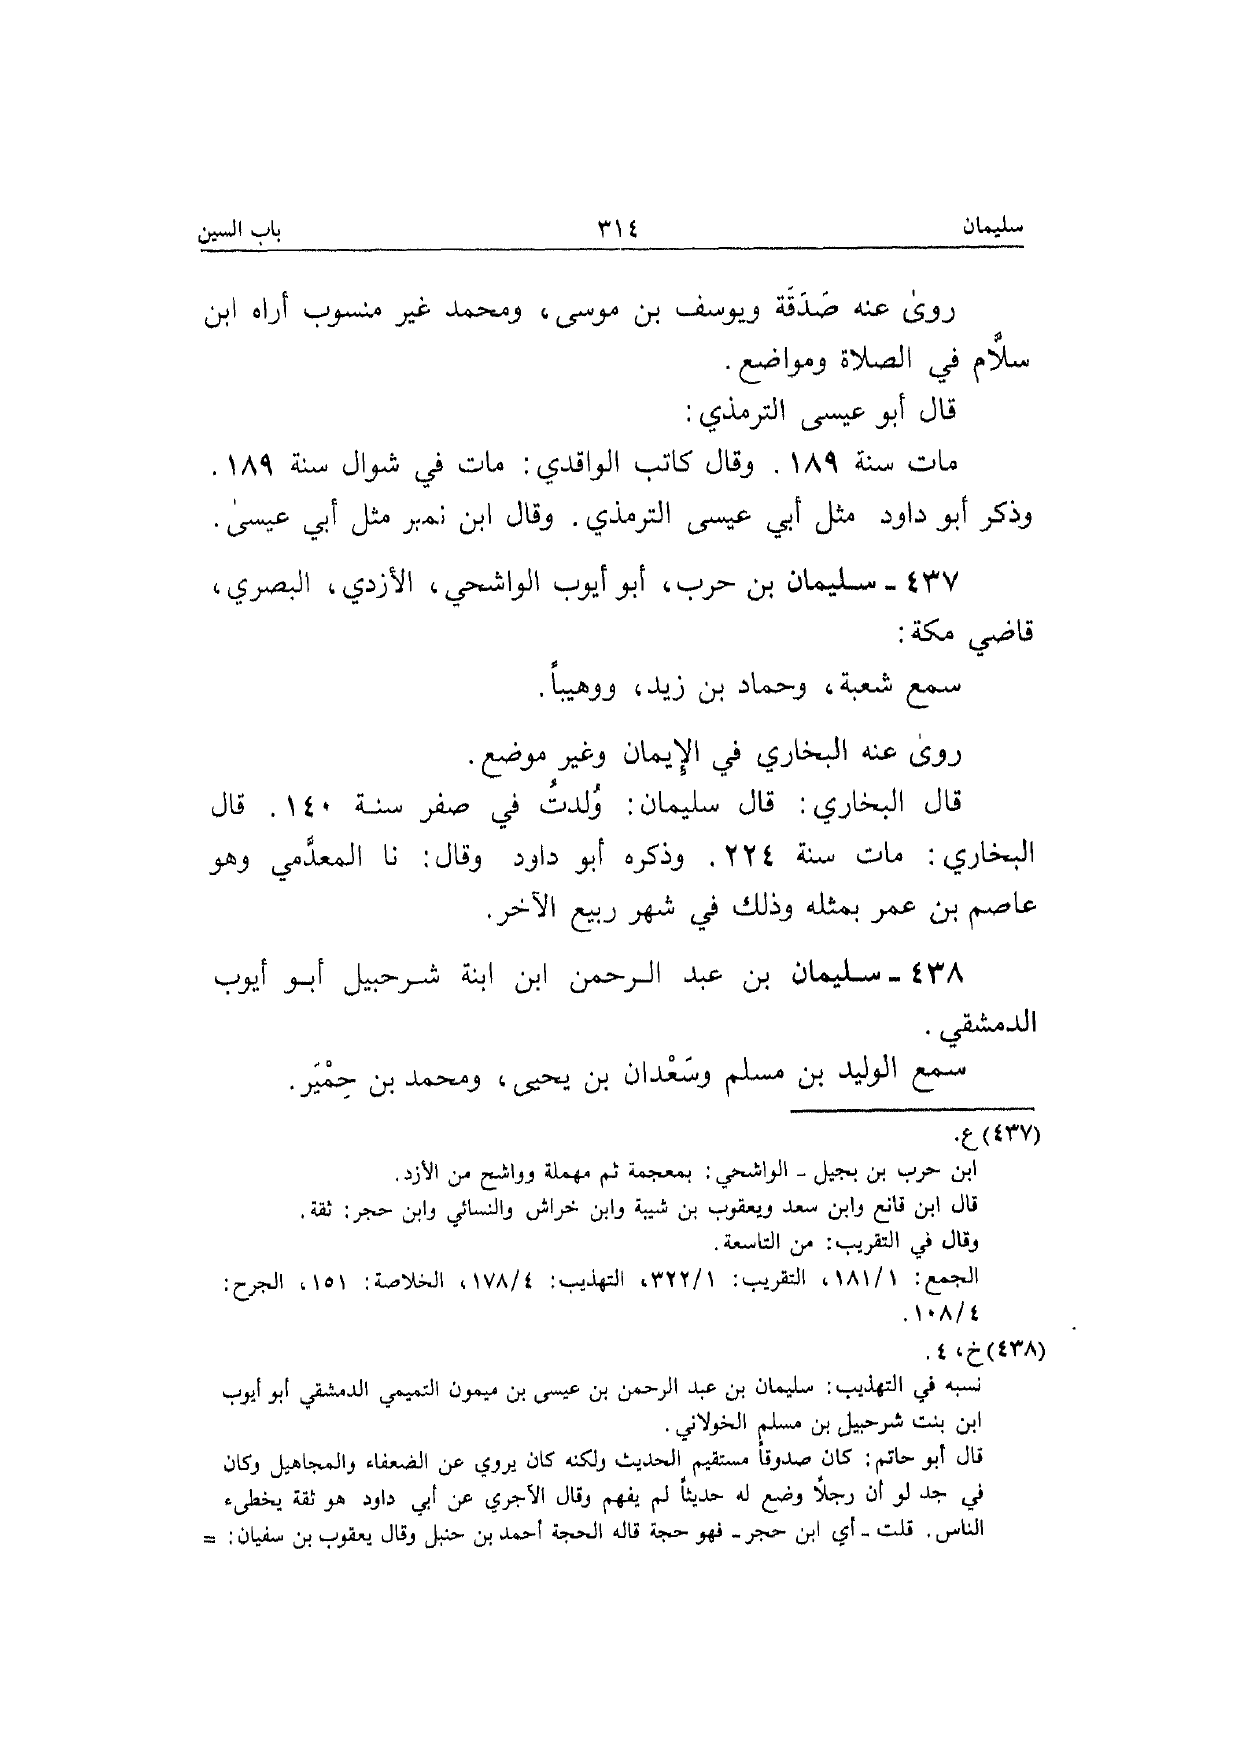 سليمان ٣١٤ باب السين
روىٰ عنه صَدَقَة ويوسف بن موسى، ومحمد غير منسوب أراه ابن
سلَّام في الصلاة ومواضع.
قال أبو عيسى الترمذي:
مات سنة ١٨٩. وقال كاتب الواقدي: مات في شوال سنة ١٨٩.
وذكر أبو داود مثل أبي عيسى الترمذي. وقال ابن نمير مثل أبي عيسىٰ.
٤٣٧ ـ سليمان بن حرب، أبو أيوب الواشحي، الأزدي، البصري،
قاضي مكة:
سمع شعبة، وحماد بن زيد، ووهيباً.
روىٰ عنه البخاري في الإيمان وغير موضع.
قال البخاري: قال سليمان: وُلدتُ في صفر سنة ١٤٠. قال
البخاري: مات سنة ٢٢٤. وذكره أبو داود وقال: نا المعدَّمي وهو
عاصم بن عمر بمثله وذلك في شهر ربيع الآخر.
٤٣٨ ـ سليمان بن عبد الرحمن ابن ابنة شرحبيل أبو أيوب
الدمشقي.
سمع الوليد بن مسلم وسَعْدان بن يحيى، ومحمد بن حِمْيَر.
(٤٣٧) ع.
ابن حرب بن بجيل ـ الواشحي: بمعجمة ثم مهملة وواشح من الأزد.
قال ابن قانع وابن سعد ويعقوب بن شيبة وابن خراش والنسائي وابن حجر: ثقة.
وقال في التقريب: من التاسعة.
الجمع: ١/١٨١، التقريب: ١/٣٢٢، التهذيب: ٤/١٧٨، الخلاصة: ١٥١، الجرح:
٤/١٠٨.
(٤٣٨) خ، ٤.
نسبه في التهذيب: سليمان بن عبد الرحمن بن عيسى بن ميمون التميمي الدمشقي أبو أيوب
ابن بنت شرحبيل بن مسلم الخولاني.
قال أبو حاتم: كان صدوقاً مستقيم الحديث ولكنه كان يروي عن الضعفاء والمجاهيل وكان
في جد لو أن رجلًا وضع له حديثاً لم يفهم وقال الآجري عن أبي داود هو ثقة يخطىء
الناس. قلت ـ أي ابن حجر ـ فهو حجة قاله الحجة أحمد بن حنبل وقال يعقوب بن سفيان: =